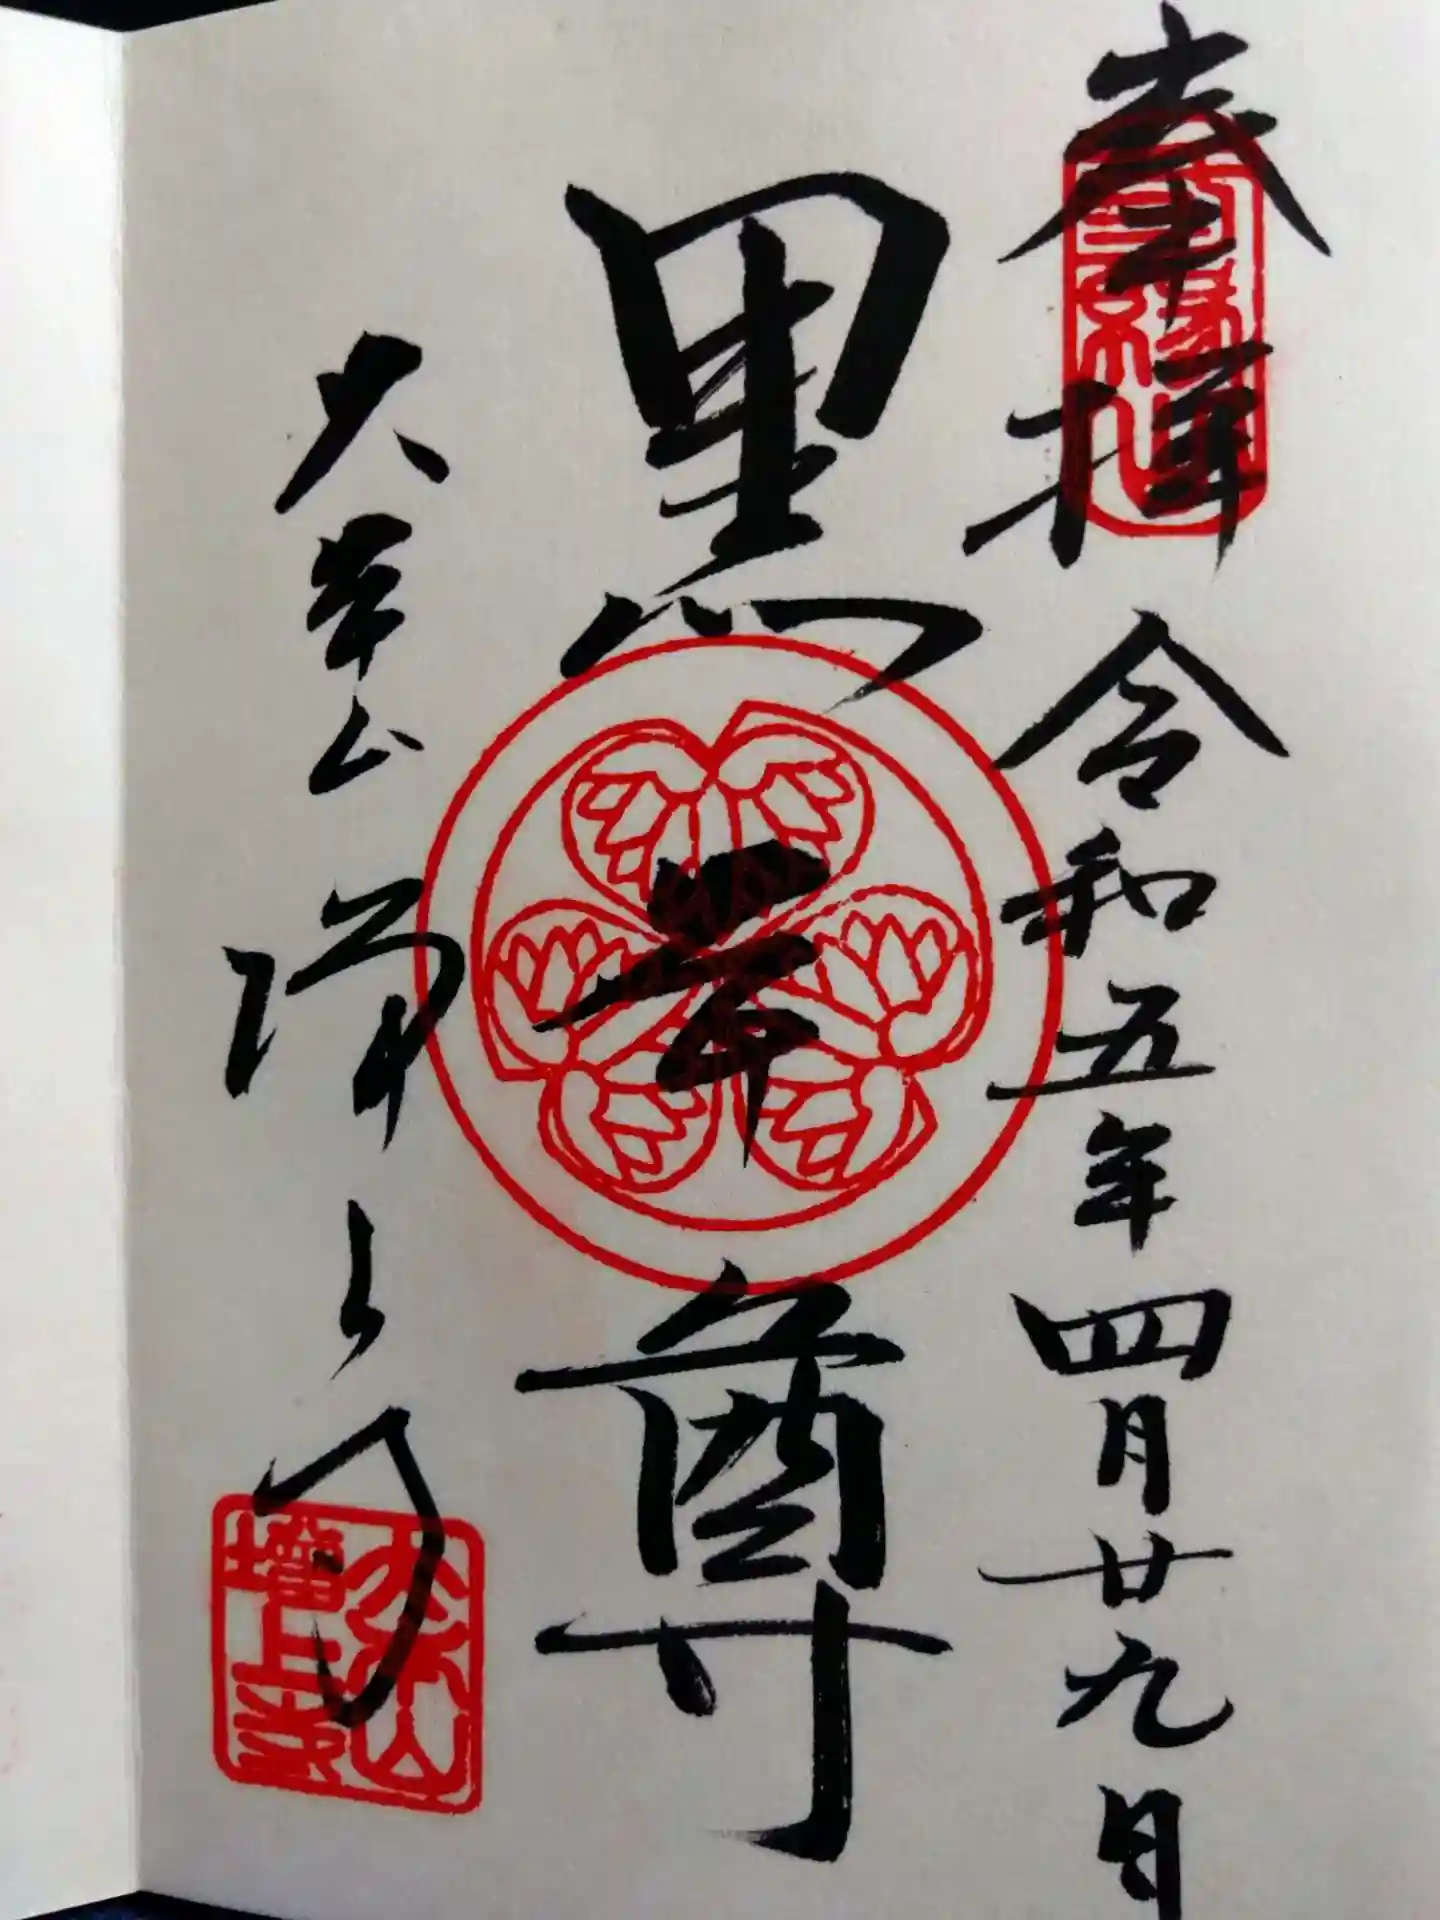 奉拝 令和五年四月廿九日
黒本尊
大本山 増上寺
大本山
増上寺